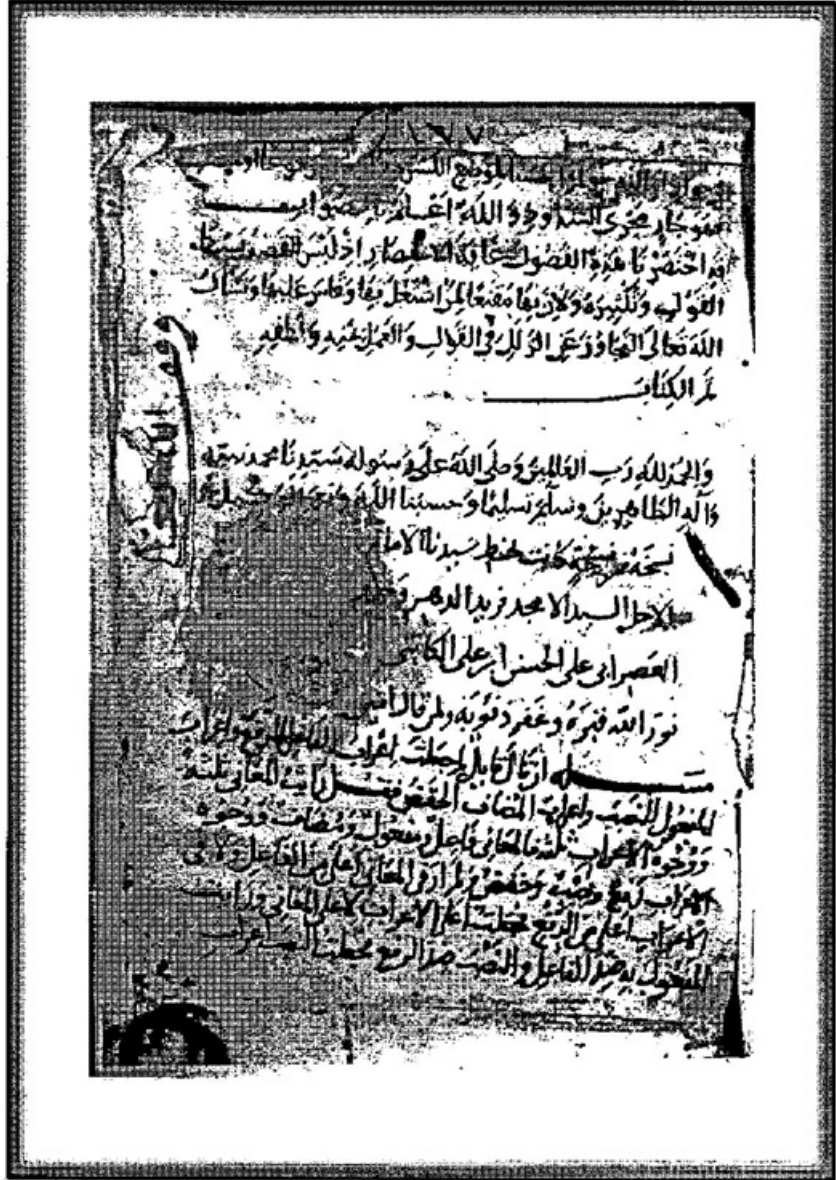 ١٦٧
فهو جار مجرى السند وذو الله اعلم بالصواب
قد اختصرنا هذه الفصول غاية الاختصار اذ ليس القصد
القول وتكثيره ولان فيها مقنعا لمن اشتغل بها وقاس عليها ونسأل
الله تعالى التجاوز عن الزلل في القول والعمل بمنه ولطفه
تم الكتاب
والحمد لله رب العالمين وصلى الله على رسوله سيدنا محمد نبيه
وآله الطاهرين وسلم تسليما وحسبنا الله ونعم الوكيل
نسخة من نسخة كانت بخط سيدنا الامام
الاجل السيد الامجد فريد الدهر
العصر ابى على الحسن ابن على
نور الله قبره وغفر ذنوبه ولمن قال امين
مسله ان قال قايل لم جعلت اعراب الفاعل الرفع واعراب
المفعول النصب واعراب المضاف الخفض فقل رايت المعانى ثلثة
ووجوه الاعراب ثلثة فالمعانى فاعل ومفعول ومضاف ووجوه
الاعراب رفع ونصب وخفض ولم ار فى المعانى اعلى من الفاعل ولا فى
الاعراب اعلى من الرفع فجعلت اعلى الاعراب لاعلى المعانى ورايت
المفعول به ضد الفاعل والنصب ضد الرفع فجعلت النصب اعراب